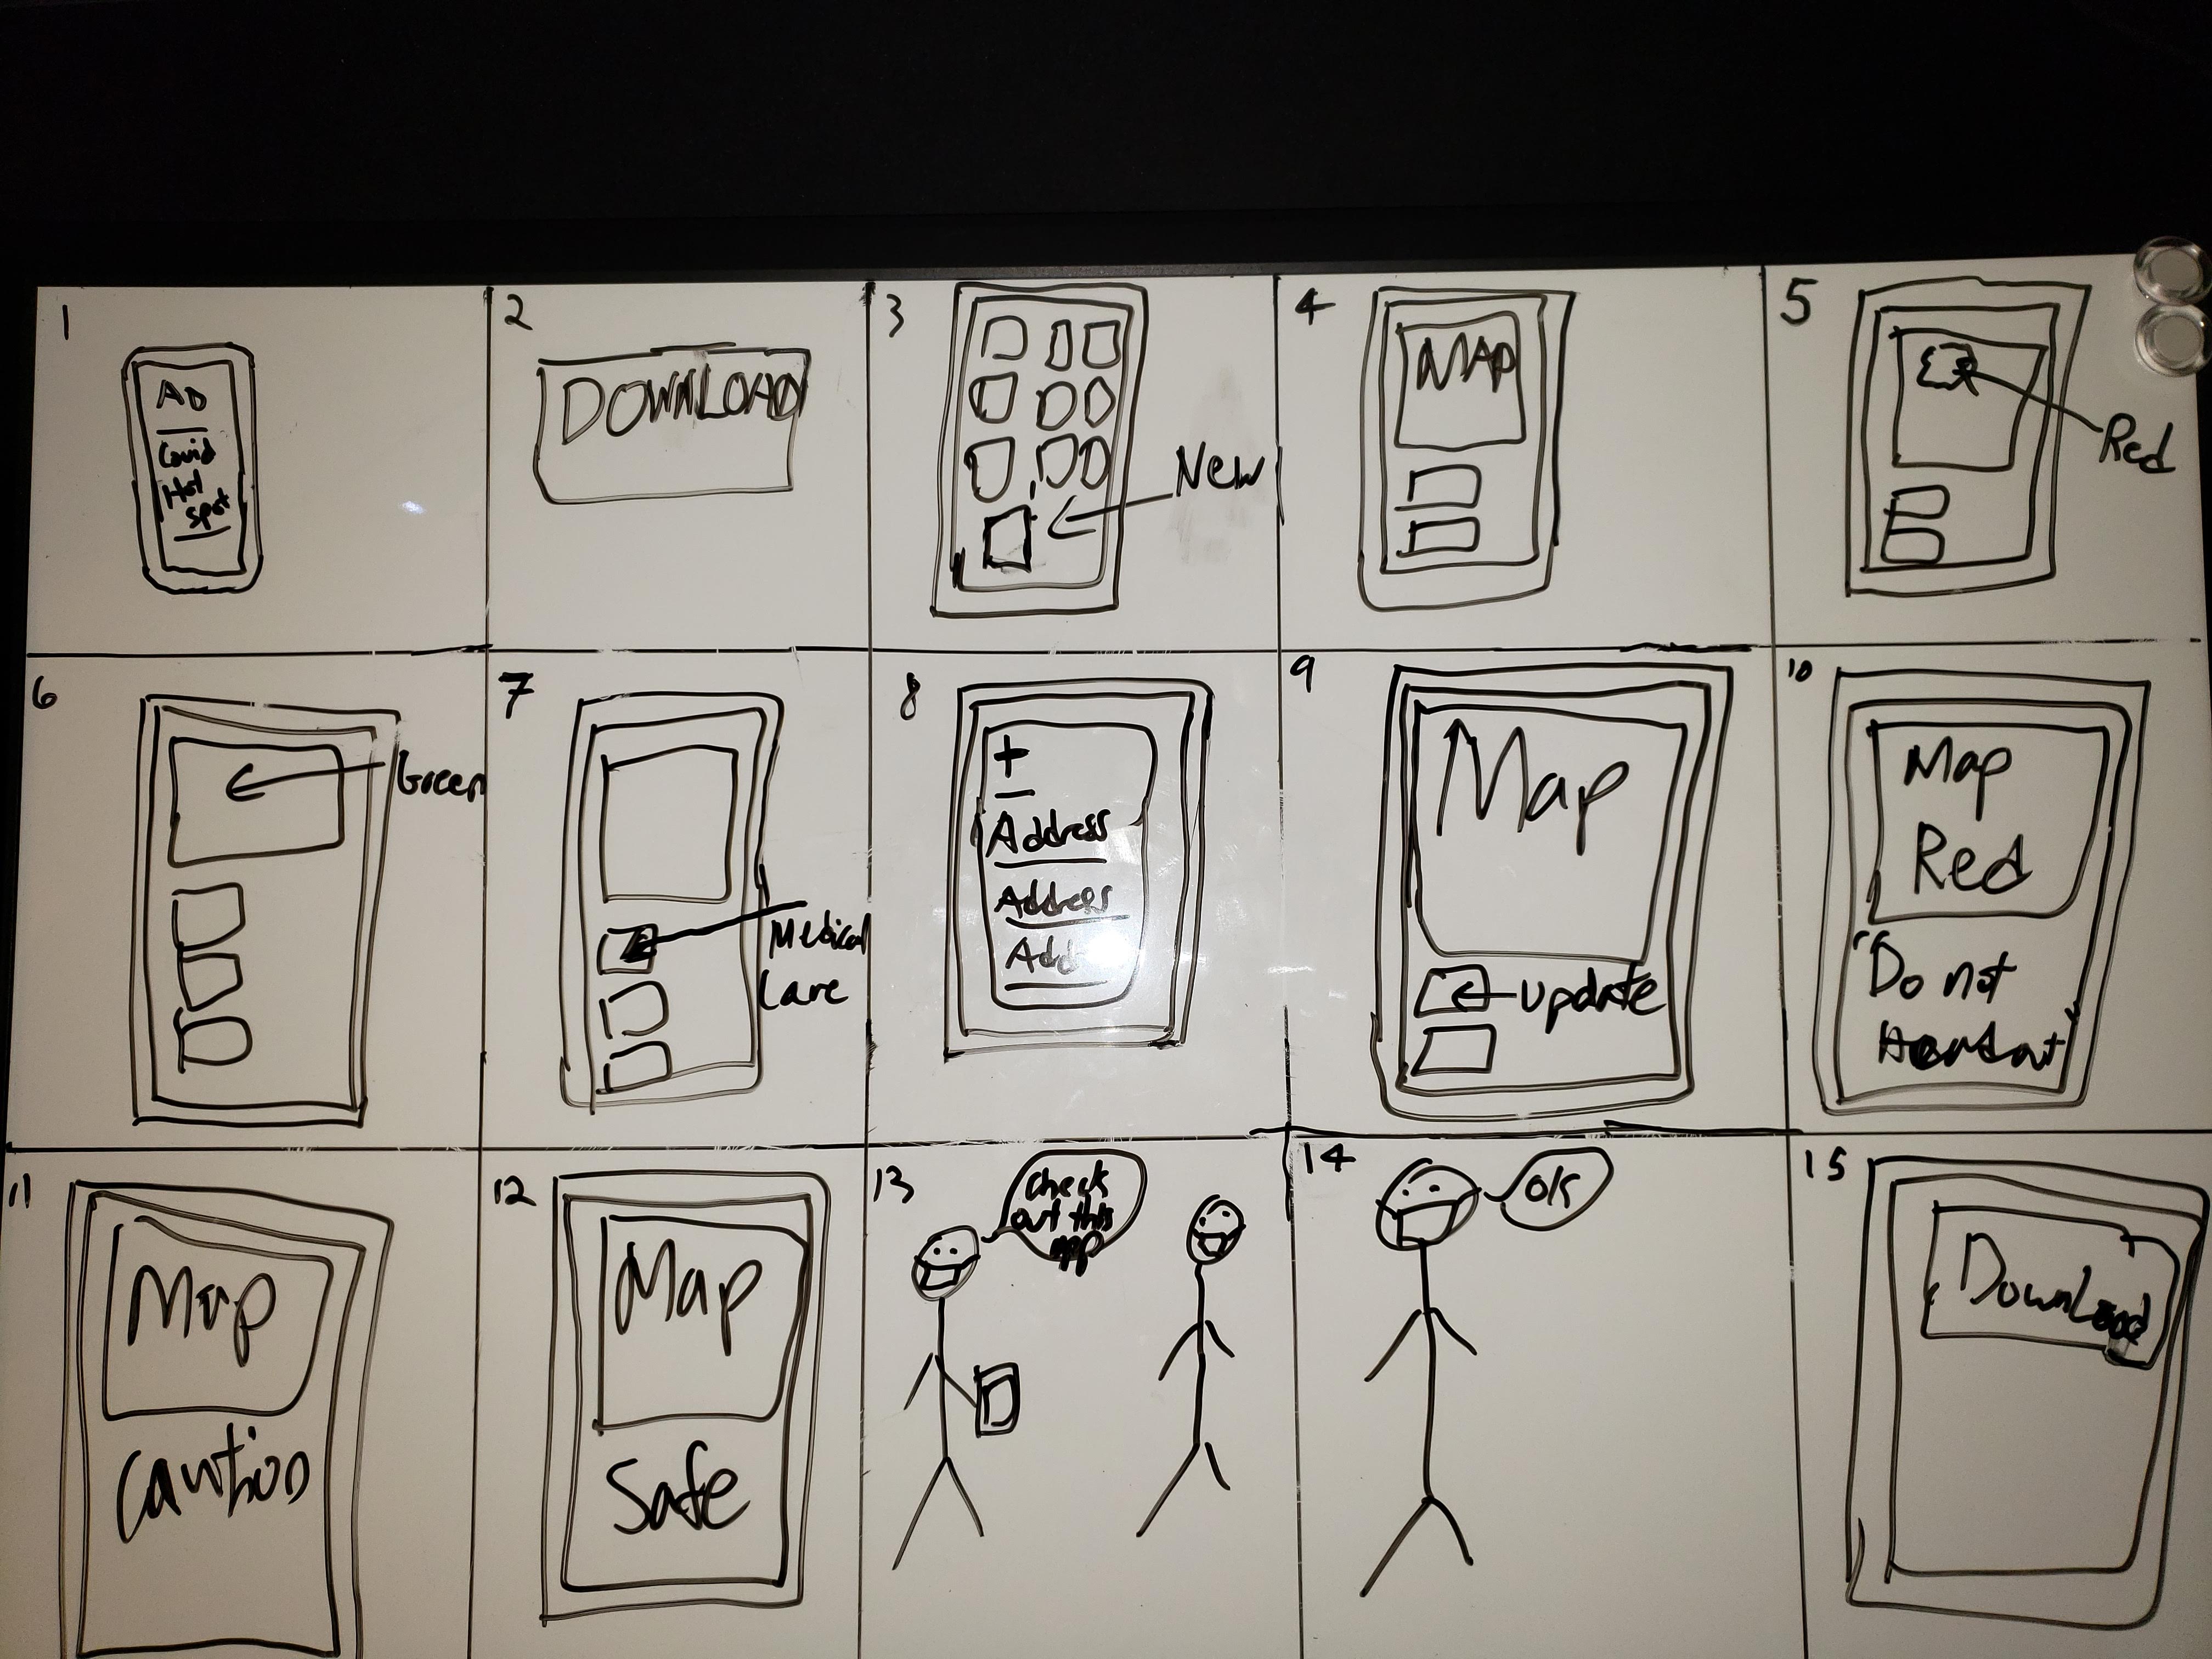 1
AD
Covid
Hot
spot
2
DOWNLOAD
3
New
4
MAP
5
Red
6
Green
7
Medical
Care
8
+
Address
Address
Add
9
Map
update
10
Map
Red
"Do not
11
Map
Caution
12
Map
Safe
13
Check
out this
app
14
Ok
15
Download